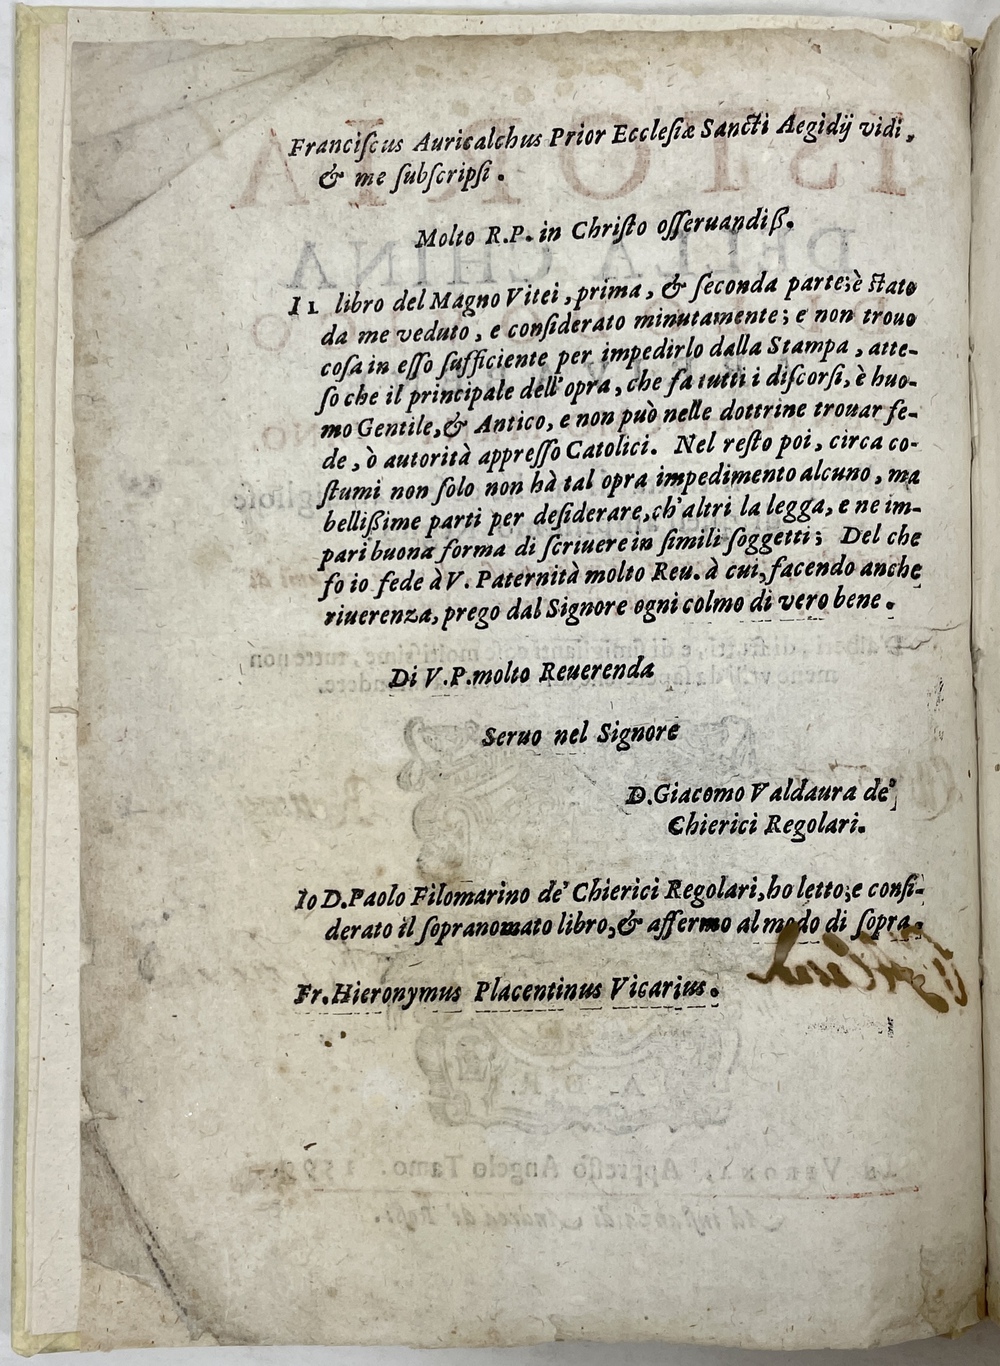 Franciſcus Auricalchus Prior Eccleſiæ Sancti Aegidij vidi,
& me ſubſcripſi.
Molto R.P. in Chriſto oſſeruandiß.
Il libro del Magno Vitei, prima, & ſeconda parte; è ſtato
da me veduto, e conſiderato minutamente; e non trouo
coſa in eſſo ſufficiente per impedirlo dalla Stampa, atte-
ſo che il principale dell'opra, che fa tutti i diſcorſi, è huo-
mo Gentile, & Antico, e non può nelle dottrine trouar fe-
de, ò autorità appreſſo Catolici. Nel reſto poi, circa co-
ſtumi non ſolo non hà tal opra impedimento alcuno, ma
bellißime parti per deſiderare, ch'altri la legga, e ne im-
pari buona forma di ſcriuere in ſimili ſoggetti; Del che
fo io fede à V. Paternità molto Reu. à cui, facendo anche
riuerenza, prego dal Signore ogni colmo di vero bene.
Di V.P. molto Reuerenda
Seruo nel Signore
D. Giacomo Valdaura de'
Chierici Regolari.
Io D. Paolo Filomarino de' Chierici Regolari, ho letto; e conſi-
derato il ſopranomato libro, & affermo al modo di ſopra.
Fr. Hieronymus Placentinus Vicarius.
ISTORIA
DELLA CHINA
D'alberi, di frutti, e di ſimiglianti coſe moltiſſime, tutte non
A. D. R.
In Verona, Appreſſo Angelo Tamo.
Ad inſtanza di Andrea de' Roſſi.